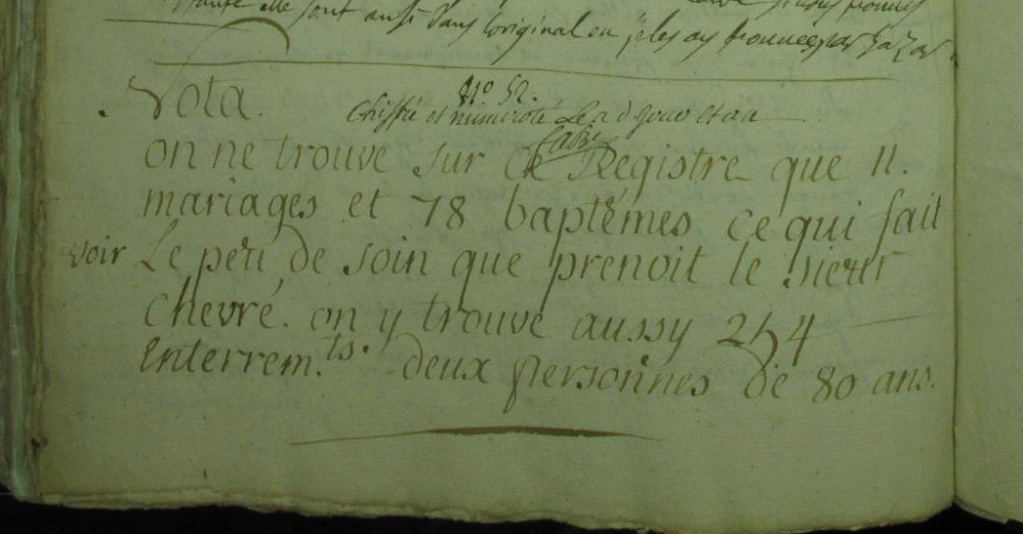 elle sont aussi dans l'original ou je les ay trouvees par hazar
Nota. N° 52.
Chiffré et numeroté Le 2 d
on ne trouve sur Ce Registre que 11.
mariages et 78 baptêmes ce qui fait
voir Le peu de soin que prenoit le sieur
Chevré. on y trouve aussy 254
Enterrem.ts. deux personnes de 80 ans.